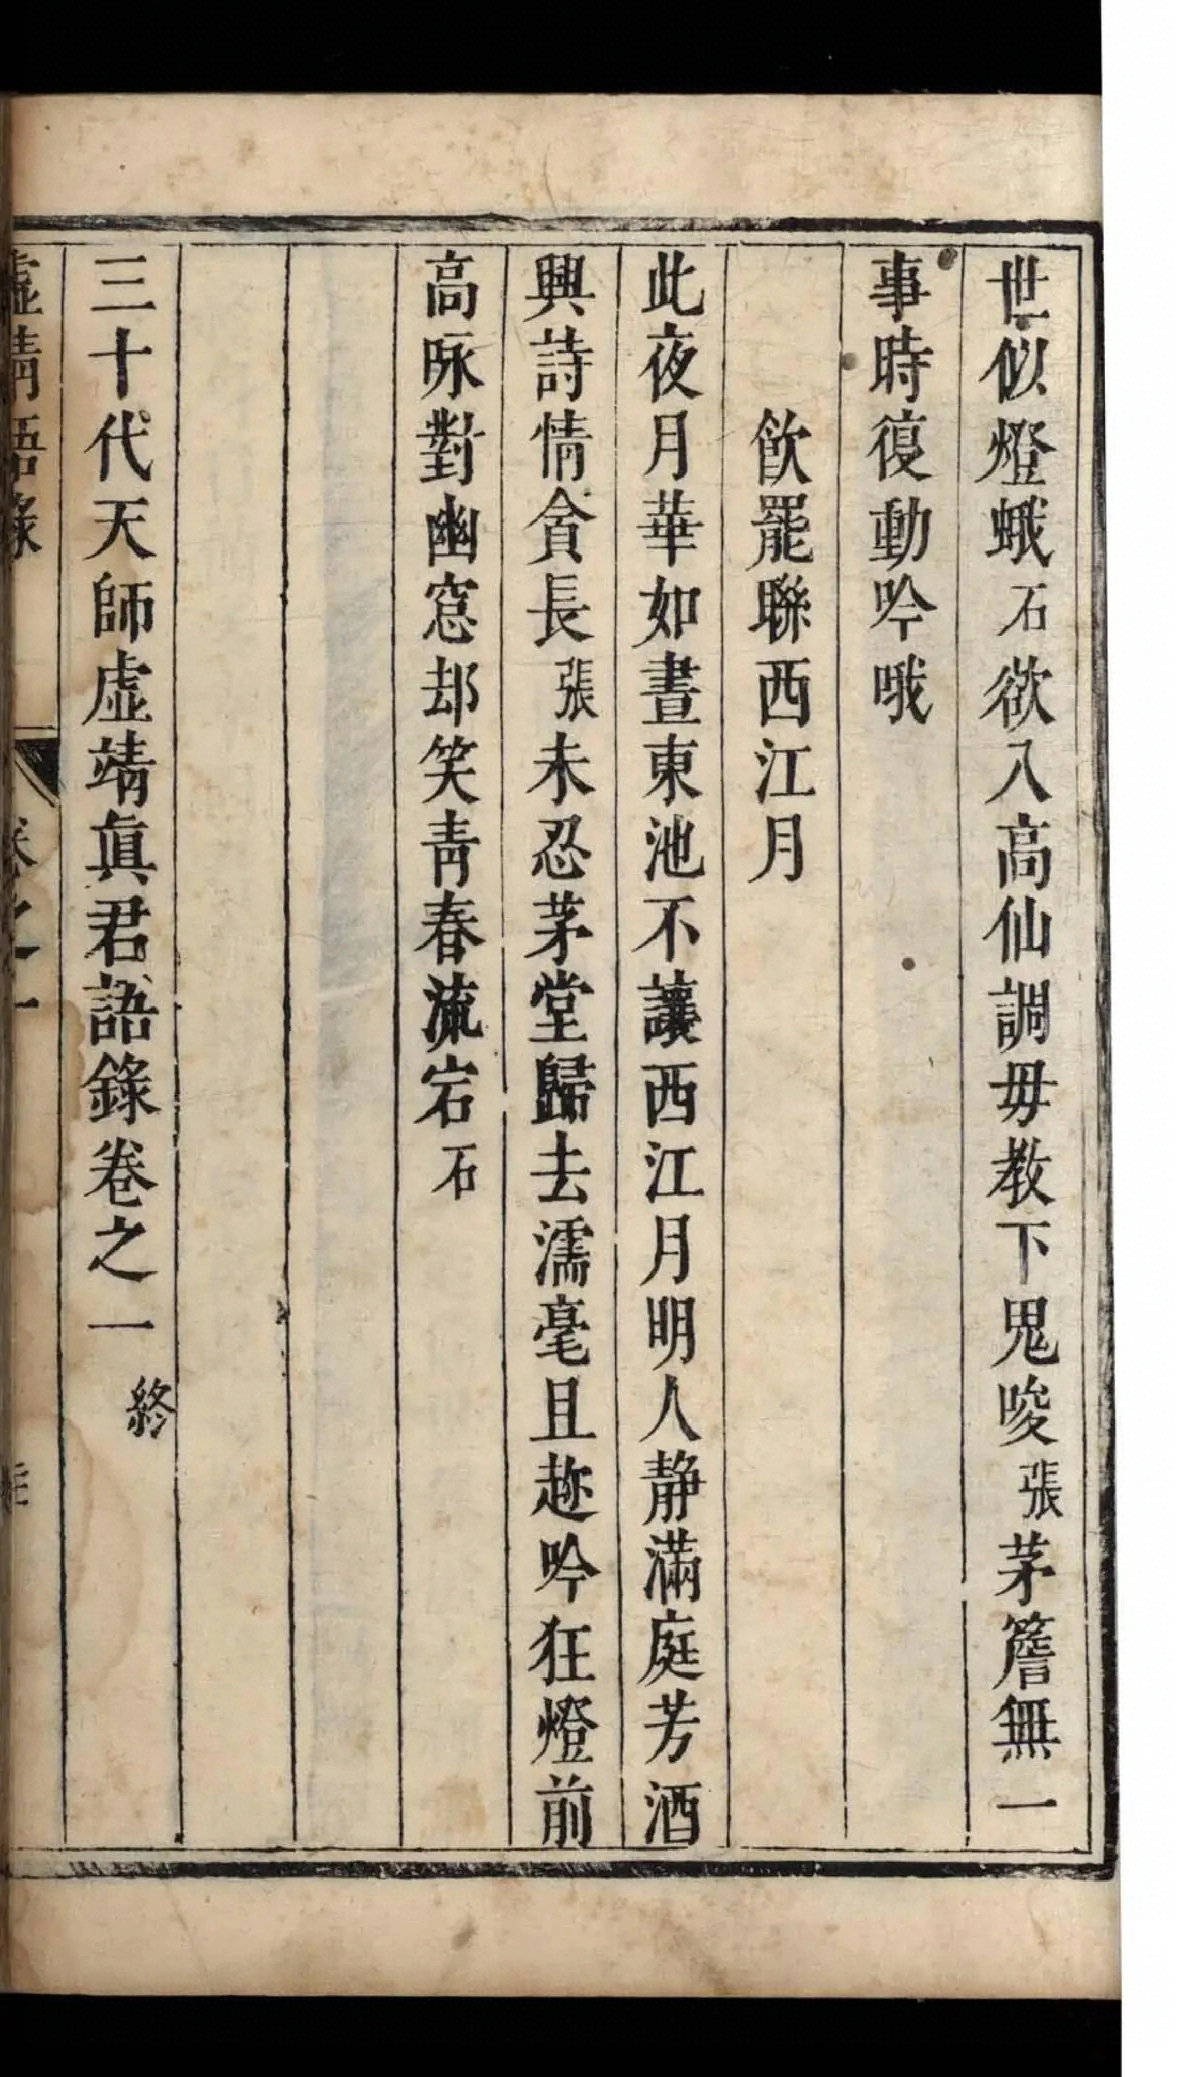 世似燈蛾石欲入高仙調毋教下鬼唆張茅簷無一
事時復動吟哦
飲罷聯西江月
此夜月華如晝東池不讓西江月明人静滿庭芳酒
興詩情貪長張未忍茅堂歸去濡毫且趂吟狂燈前
高咏對幽窓却笑青春流宕石
三十代天師虛靖眞君語錄卷之一終
虛靖語錄 卷之一